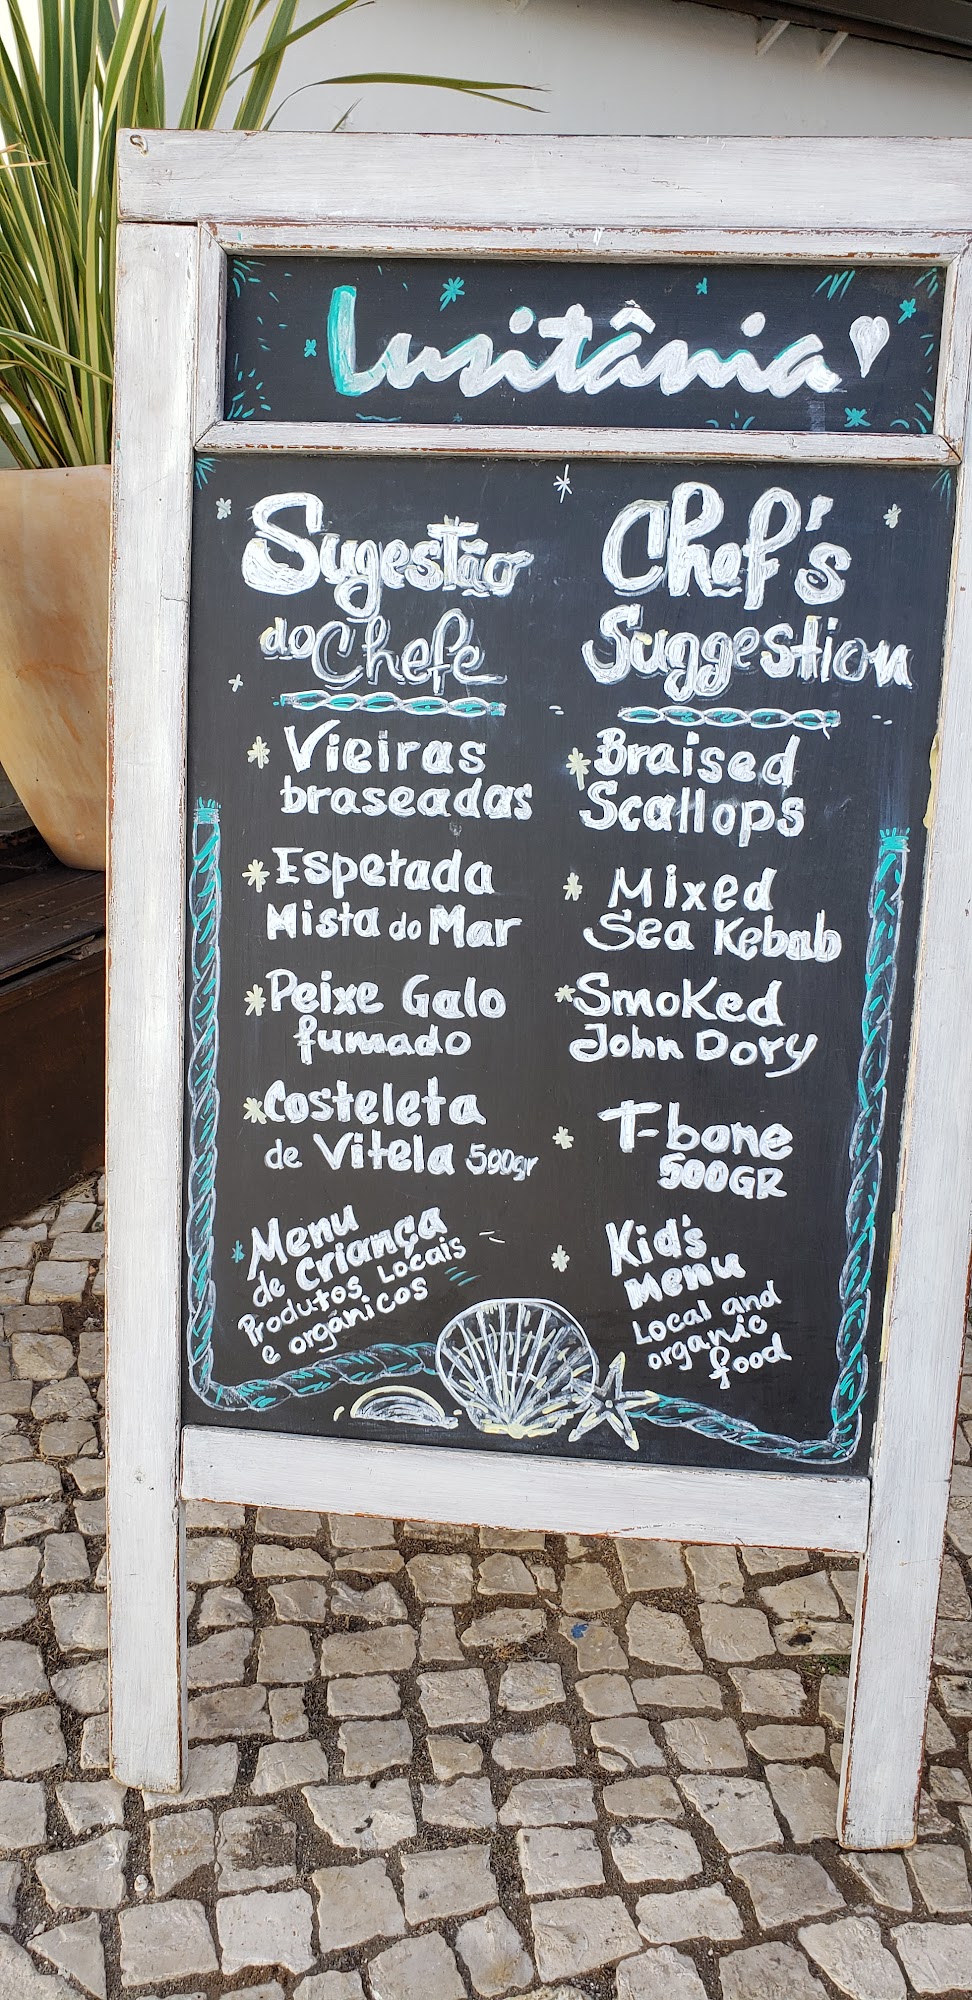 Lusitânia
Sugestão
do Chefe
Vieiras
braseadas
Espetada
Mista do Mar
Peixe Galo
fumado
Costeleta
de Vitela 500gr
Menu
de Criança
Produtos Locais
e orgânicos
Chef's
Suggestion
Braised
Scallops
Mixed
Sea Kebab
Smoked
John Dory
T-bone
500GR
Kid's
Menu
Local and
organic
food